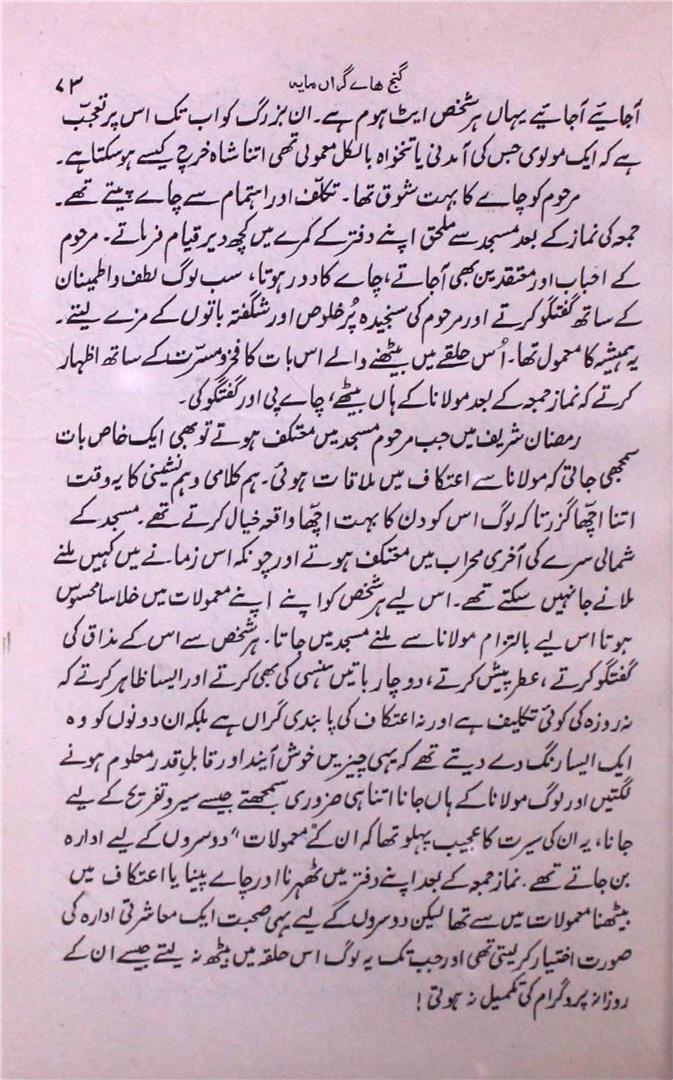 گنج ھاے گراں مایہ
۷۳
آجائیے آجائیے یہاں ہر شخص ایٹ ہوم ہے۔ ان بزرگ کو اب تک اس پر تعجّب
ہے کہ ایک مولوی جس کی آمدنی یا تنخواہ بالکل معمولی تھی اتنا شاہ خرچ کیسے ہو سکتا ہے۔
مرحوم کو چاے کا بہت شوق تھا۔ تکلّف اور اہتمام سے چاے پیتے تھے۔
جمعہ کی نماز کے بعد مسجد سے ملحق اپنے دفتر کے کمرے میں کچھ دیر قیام فرماتے۔ مرحوم
کے احباب اور معتقدین بھی آجاتے، چاے کا دور ہوتا، سب لوگ لطف و اطمینان
کے ساتھ گفتگو کرتے اور مرحوم کی سنجیدہ پُر خلوص اور شگفتہ باتوں کے مزے لیتے۔
یہ ہمیشہ کا معمول تھا۔ اُس حلقے میں بیٹھنے والے اس بات کا فخر و مسرّت کے ساتھ اظہار
کرتے کہ نماز جمعہ کے بعد مولانا کے ہاں بیٹھے، چاے پی اور گفتگو کی۔
رمضان شریف میں جب مرحوم مسجد میں معتکف ہوتے تو بھی ایک خاص بات
سمجھی جاتی کہ مولانا سے اعتکاف میں ملاقات ہوئی۔ ہم کلامی و ہم نشینی کا یہ وقت
اتنا اچّھا گزرتا کہ لوگ اس کو دن کا بہت اچّھا واقعہ خیال کرتے تھے۔ مسجد کے
شمالی سرے کی آخری محراب میں معتکف ہوتے اور چونکہ اس زمانے میں کہیں ملنے
ملانے جا نہیں سکتے تھے۔ اس لیے ہر شخص کو اپنے اپنے معمولات میں خلا سا محسوس
ہوتا اس لیے بالتزام مولانا سے ملنے مسجد میں جاتا۔ ہر شخص سے اس کے مذاق کی
گفتگو کرتے، عطر پیش کرتے، دو چار باتیں ہنسی کی بھی کرتے اور ایسا ظاہر کرتے کہ
نہ روزہ کی کوئی تکلیف ہے اور نہ اعتکاف کی پابندی گراں ہے بلکہ ان دونوں کو وہ
ایک ایسا رنگ دے دیتے تھے کہ یہی چیزیں خوش آیند اور قابلِ قدر معلوم ہونے
لگتیں اور لوگ مولانا کے ہاں جانا اتنا ہی ضروری سمجھتے جیسے سیر و تفریح کے لیے
جانا، یہ ان کی سیرت کا عجیب پہلو تھا کہ ان کے "معمولات" دوسروں کے لیے ادارہ
بن جاتے تھے۔ نماز جمعہ کے بعد اپنے دفتر میں ٹھہرنا اور چاے پینا یا اعتکاف میں
بیٹھنا معمولات میں سے تھا لیکن دوسروں کے لیے یہی صحبت ایک معاشرتی ادارہ کی
صورت اختیار کر لیتی تھی اور جب تک یہ لوگ اس حلقہ میں بیٹھ نہ لیتے جیسے ان کے
روزانہ پروگرام کی تکمیل نہ ہوتی!